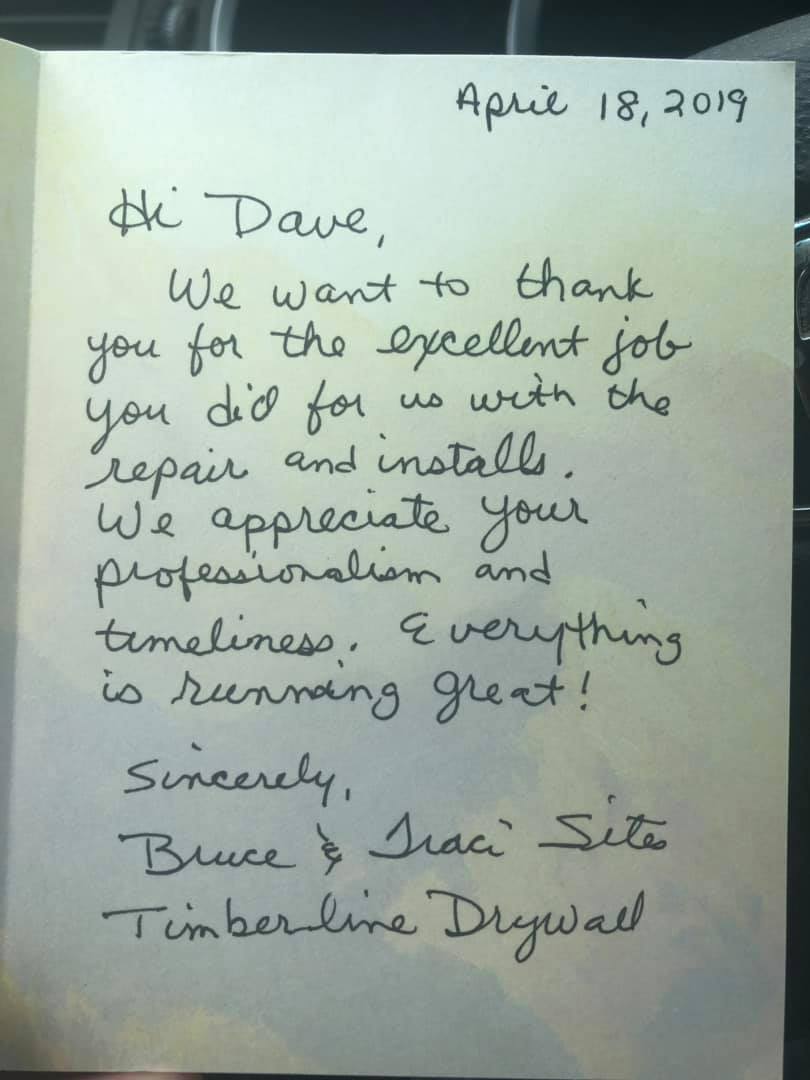 April 18, 2019
Hi Dave,
We want to thank
you for the excellent job
you did for us with the
repair and installs.
We appreciate your
professionalism and
timeliness. Everything
is running great!
Sincerely,
Bruce & Traci Sites
Timberline Drywall